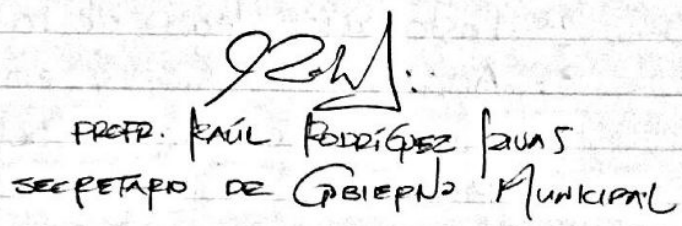 PROFR. RAÚL RODRÍGUEZ RIVAS
SECRETARIO DE GOBIERNO MUNICIPAL